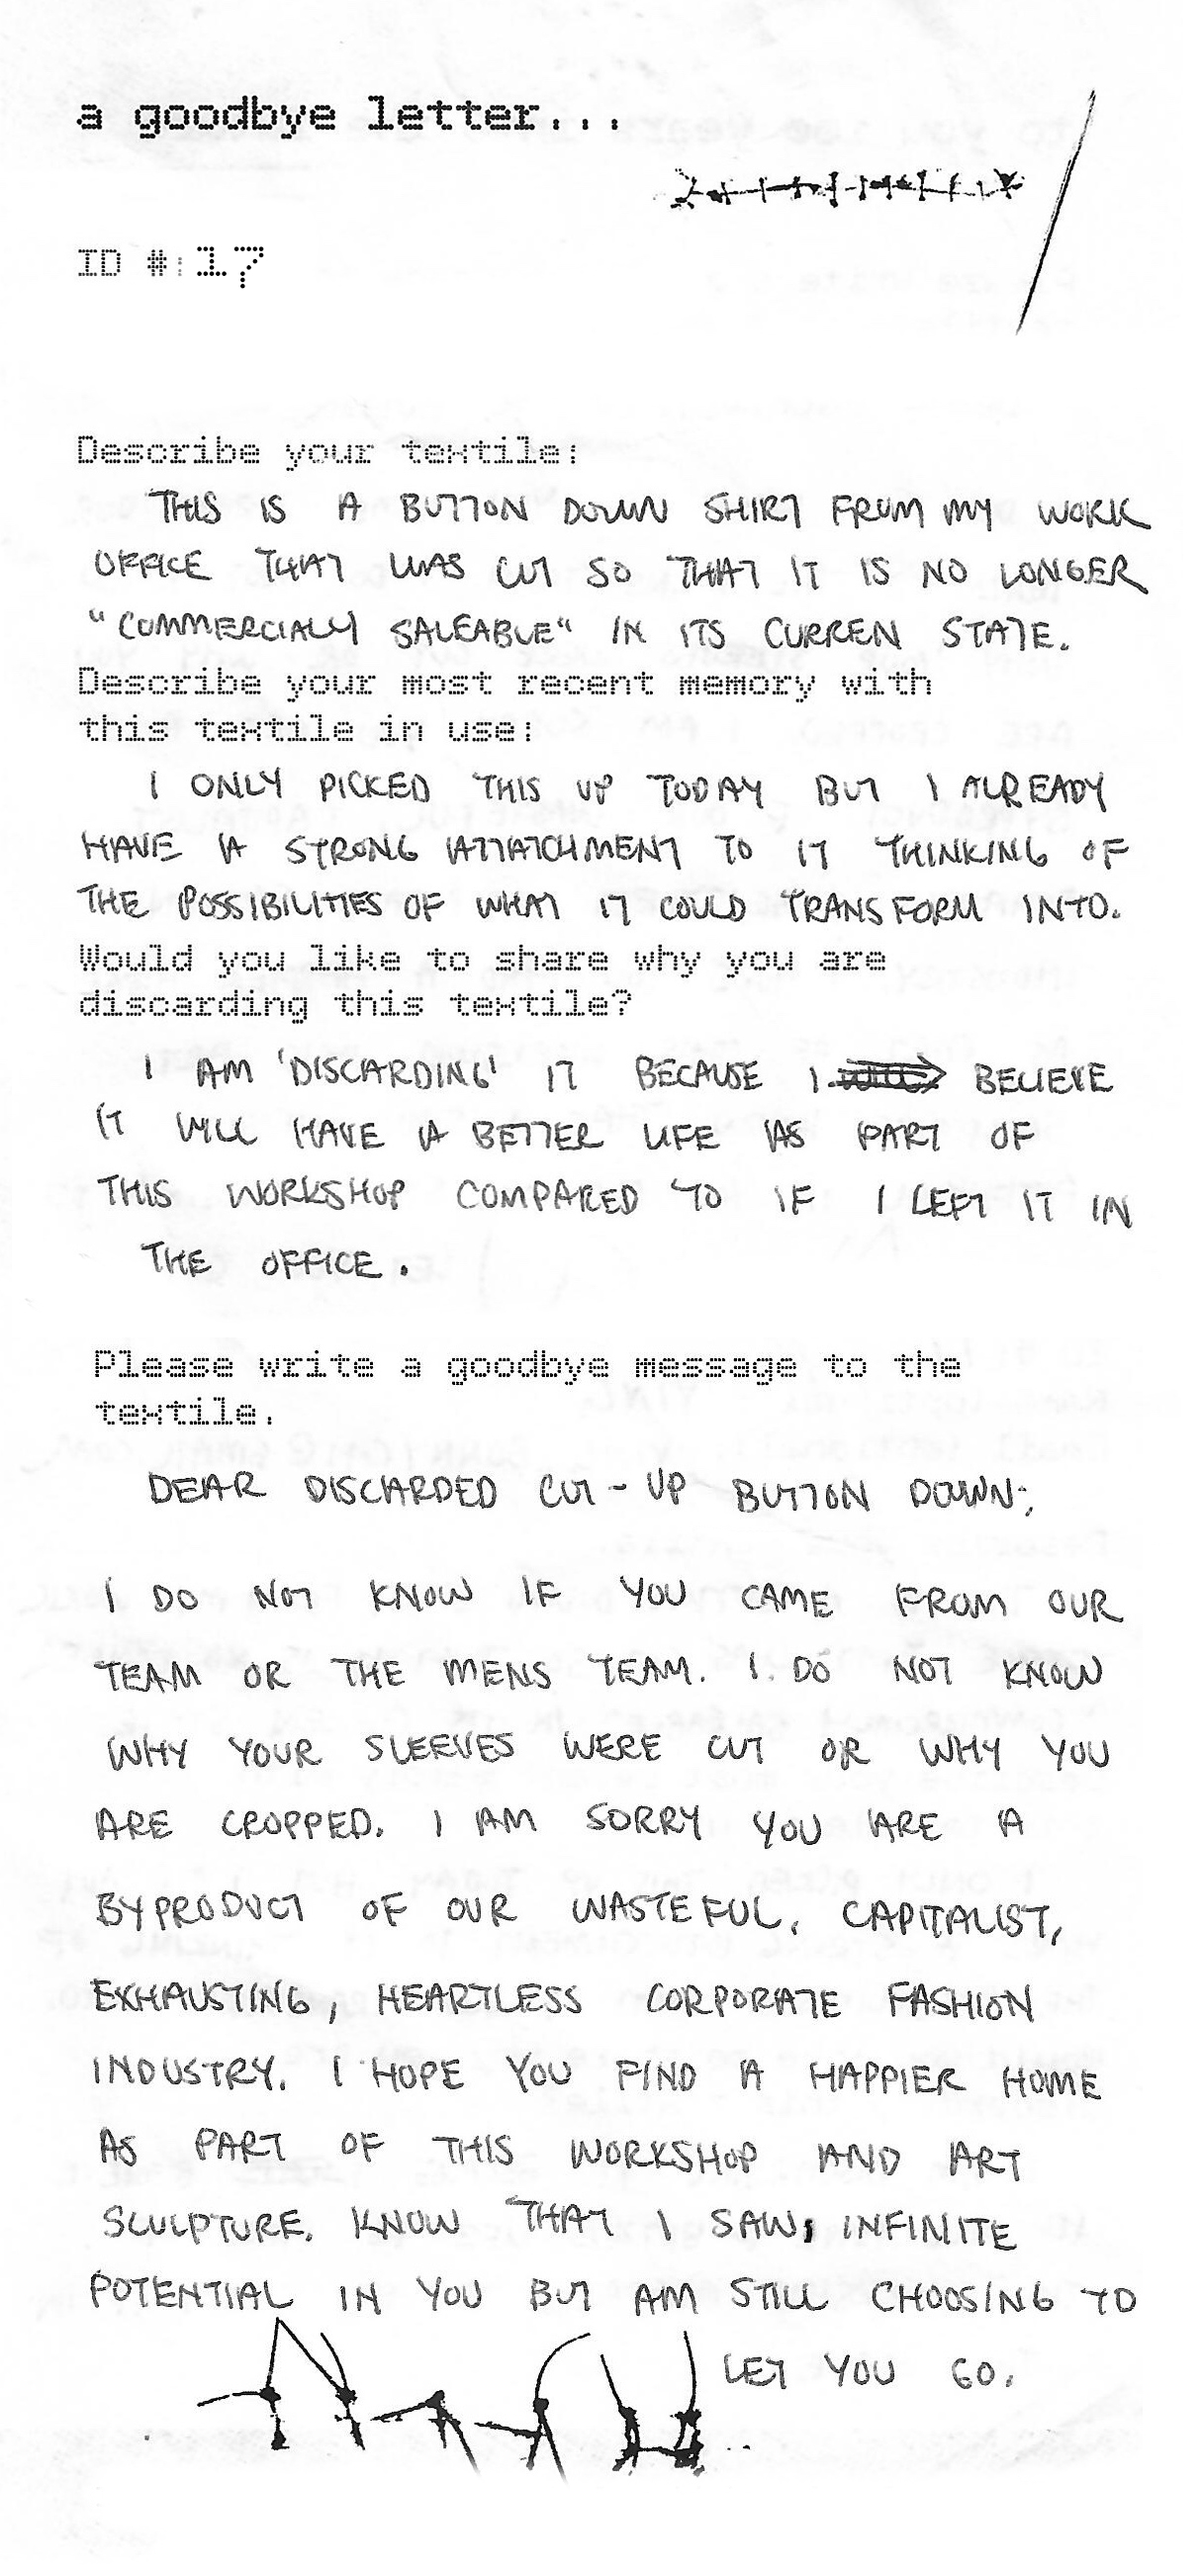 a goodbye letter...
ID #:17
Describe your textile:
THIS IS A BUTTON DOWN SHIRT FROM MY WORK
OFFICE THAT WAS CUT SO THAT IT IS NO LONGER
"COMMERCIALLY SALEABLE" IN ITS CURREN STATE.
Describe your most recent memory with
this textile in use:
I ONLY PICKED THIS UP TODAY BUT I ALREADY
HAVE A STRONG ATTATCHMENT TO IT THINKING OF
THE POSSIBILITIES OF WHAT IT COULD TRANSFORM INTO.
Would you like to share why you are
discarding this textile?
I AM 'DISCARDING' IT BECAUSE I BELIEVE
IT WILL HAVE A BETTER LIFE AS PART OF
THIS WORKSHOP COMPARED TO IF I LEFT IT IN
THE OFFICE.
Please write a goodbye message to the
textile.
DEAR DISCARDED CUT-UP BUTTON DOWN;
I DO NOT KNOW IF YOU CAME FROM OUR
TEAM OR THE MENS TEAM. I DO NOT KNOW
WHY YOUR SLEEVES WERE CUT OR WHY YOU
ARE CROPPED. I AM SORRY YOU ARE A
BYPRODUCT OF OUR WASTEFUL, CAPITALIST,
EXHAUSTING, HEARTLESS CORPORATE FASHION
INDUSTRY. I HOPE YOU FIND A HAPPIER HOME
AS PART OF THIS WORKSHOP AND ART
SCULPTURE. KNOW THAT I SAW INFINITE
POTENTIAL IN YOU BUT AM STILL CHOOSING TO
LET YOU GO.